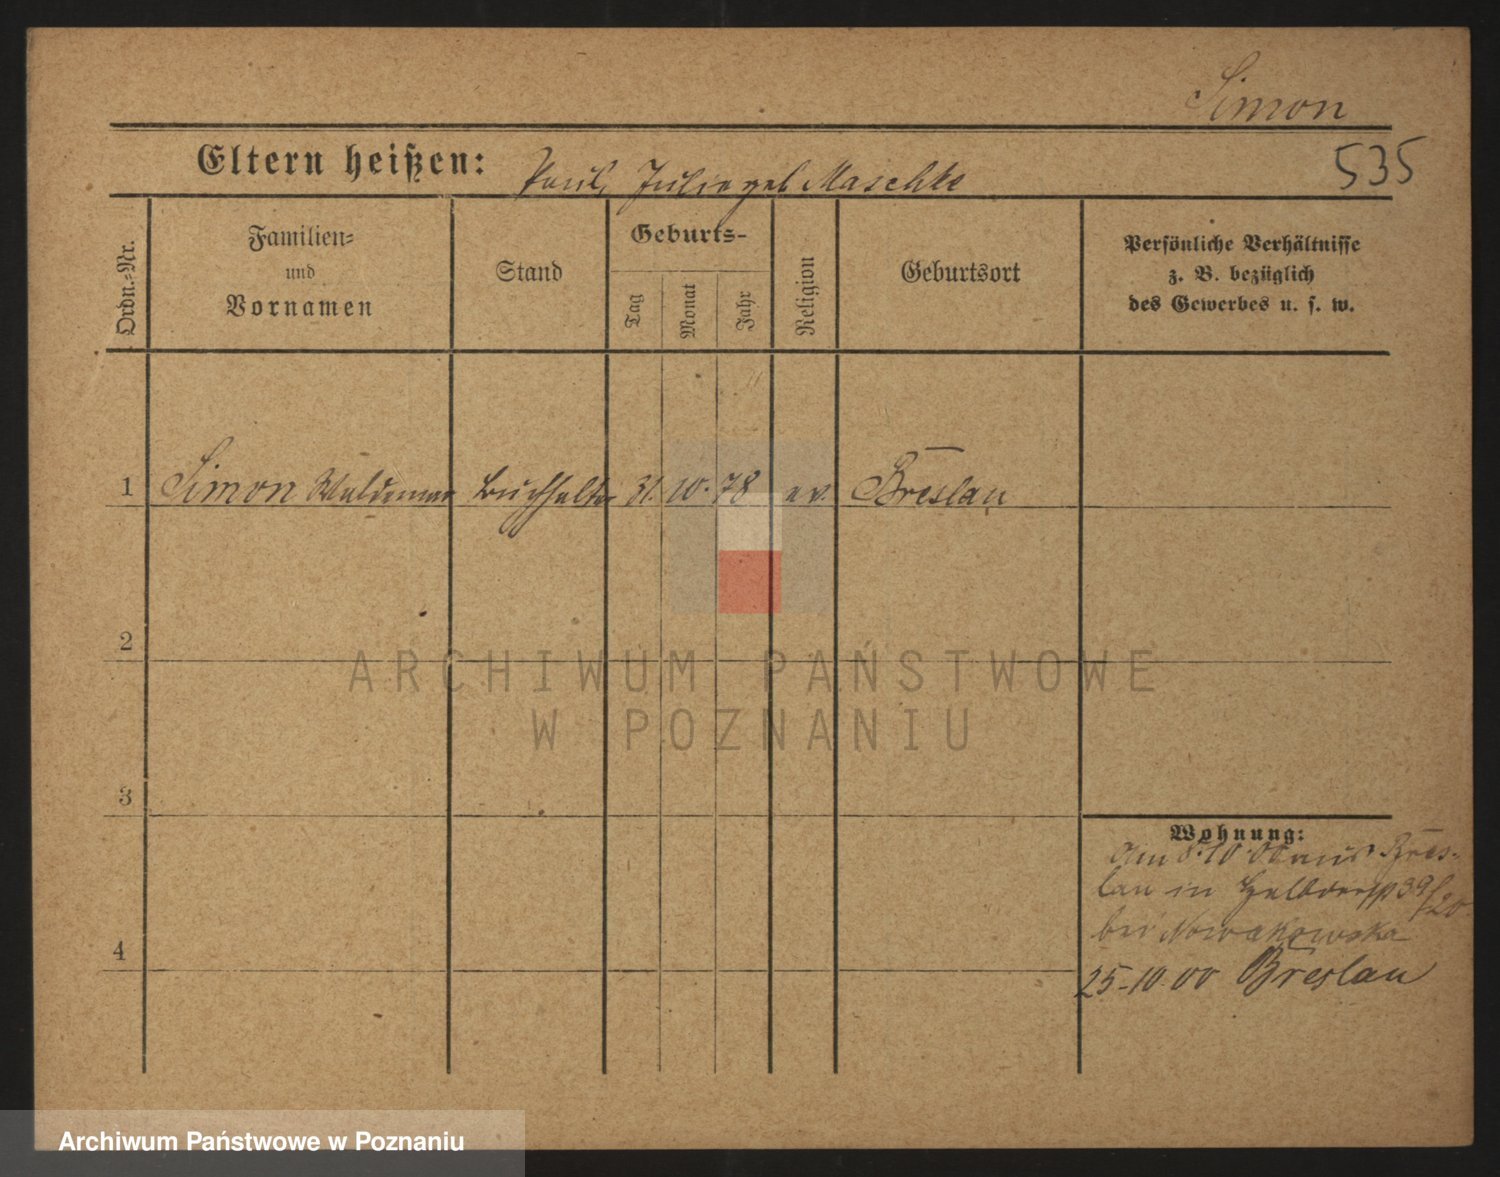 Simon
535
Eltern heißen: Paul, Julie geb Maschke
Ordn.-Nr.
Familien-
und
Vornamen
Stand
Geburts-
Tag
Monat
Jahr
Religion
Geburtsort
Persönliche Verhältnisse
z. B. bezüglich
des Gewerbes u. s. w.
1 Simon Waldemar Buchhalter 31. 10. 78 ev. Breslau
2
3
4
Wohnung:
Am 8.10.00 aus Bres-
lau in Halbdorfstr 39/20
bei Nowakowska
25-10.00 Breslau
ARCHIWUM PAŃSTWOWE
W POZNANIU
Archiwum Państwowe w Poznaniu